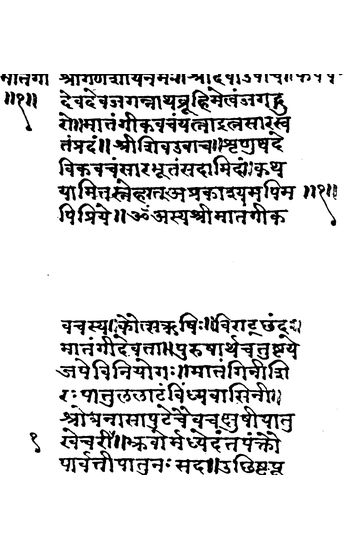 मातंगी श्रीगणेशायनमः॥श्रीदेव्युवाच॥
॥१॥ देवदेवजगन्नाथब्रूहिमेत्वंजगद्गु
रो॥मातंगीकवचंयत्नाद्रत्नसारस्व
तप्रदं॥श्रीशिवउवाच॥शृणुष्वदे
विकवचंसारभूतंसदामिदं॥कथ
यामितवस्नेहात्अप्रकाश्यमपिम ॥१॥
पिप्रिये॥ॐअस्यश्रीमातंगीक
वचस्य कौत्सऋषिः॥विराट्छंदः
मातंगीदेवता॥पुरुषार्थचतुष्टये
जपेविनियोगः॥मातंगिनीशि
रःपातुललाटंविंध्यवासिनी॥
श्रोघनासापुटेचैवचक्षुषीपातु
१ खेचरी॥भ्रुवोर्मध्येदंतपंक्तो
पार्वतीपातुनः सदा॥उछिष्टपू